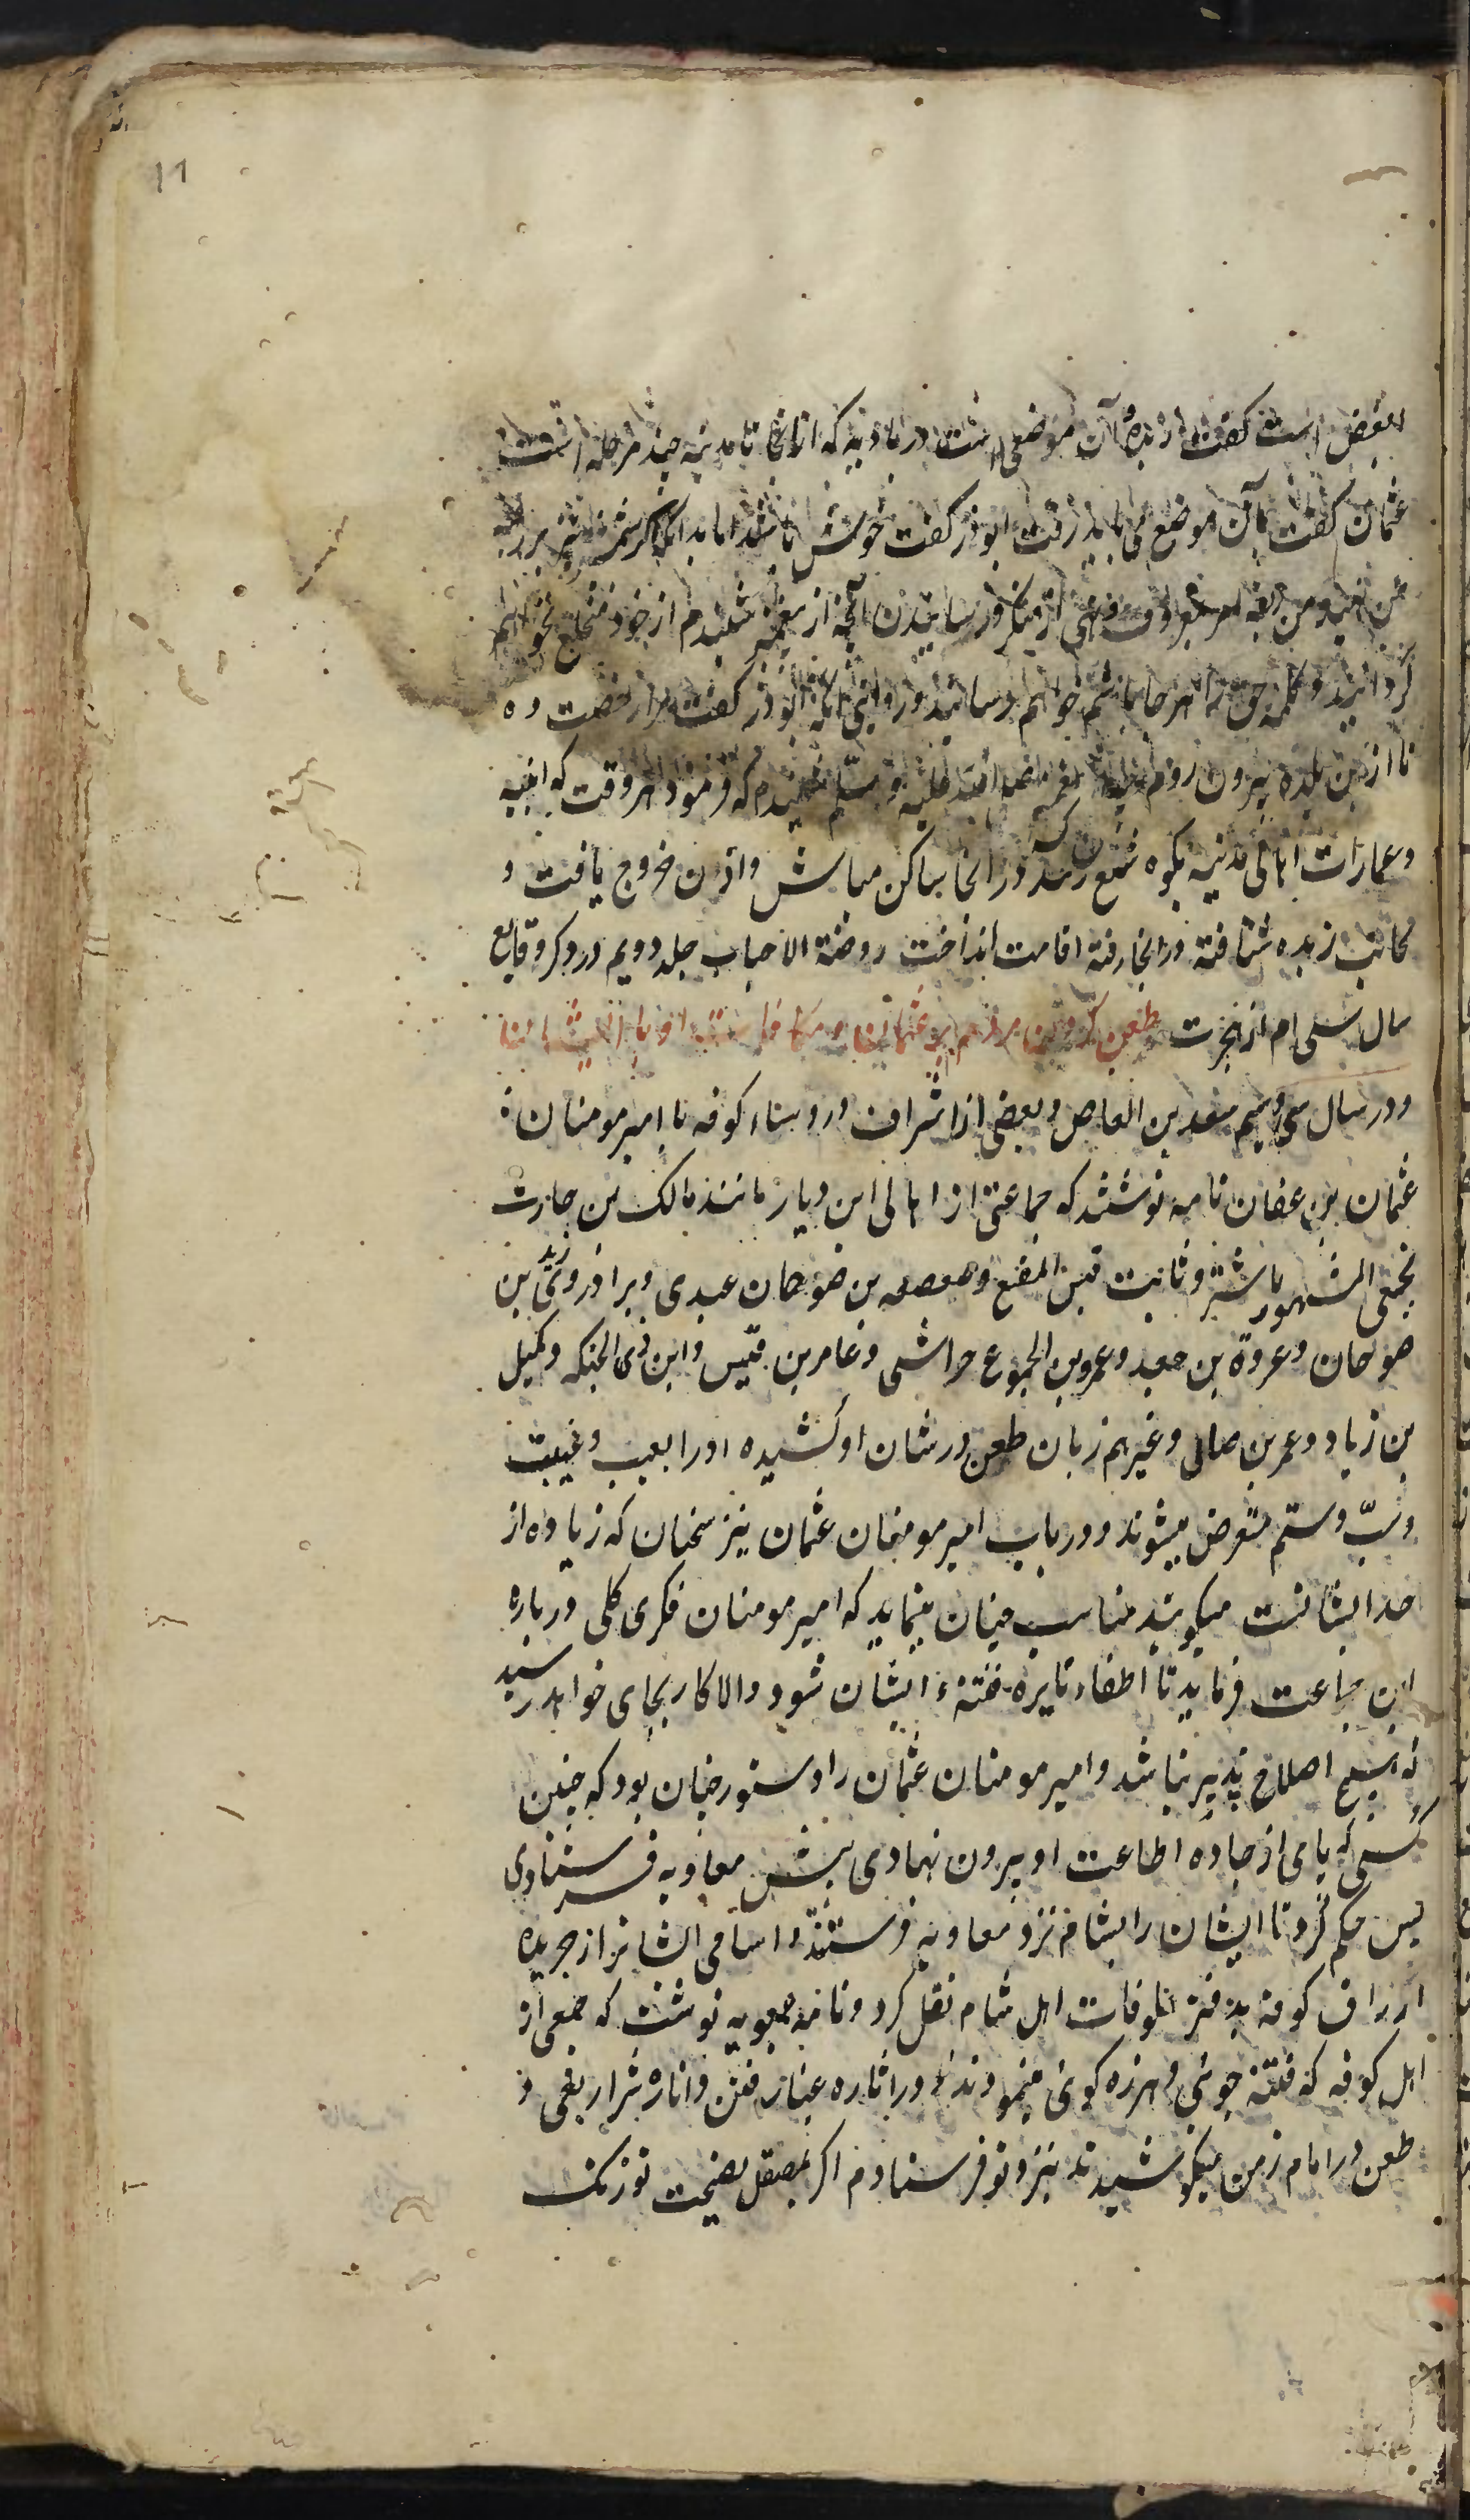 11
است گفت ربذه و آن موضعی است در بادیه که از آنجا تا مدینه چند مرحله است
عثمان گفت بآن موضع می باید رفت ابوذر گفت خوش باشد اما بدانکه اگر شمشیر بر
من نهند من امر بمعروف و نهی از منکر و رسانیدن آنچه از پیغمبر شنیدم از خود منخلع نخواهم
گردانید و کلمه حق را هر جا باشم خواهم رسانید و روایتی آنکه ابوذر گفت مرا رخصت ده
تا ازین بلده بیرون روم پیغمبر صلی الله علیه و سلم شنیدم که فرمود هر وقت که ابنیه
و عمارات اهالی مدینه بکوه سلع رسد در آنجا ساکن مباش و اذن خروج یافت و
بجانب ربذه شتافته در آنجا رفته اقامت انداخت روضة الاحباب جلد دویم در ذکر وقایع
سال سی ام از هجرت طعن کردن مردم بر عثمان و مکافات او با ایشان
و در سال سی و سیم سعد بن العاص و بعضی از اشراف و روساء کوفه با امیر مومنان
عثمان بن عفان نامه نوشتند که جماعتی از اهالی این دیار مانند مالک بن حارث
نخعی المشهور باشتر و ثابت قیس المقنع و صعصعه بن صوحان عبدی و برادر وی زید بن
صوحان و عروة بن جعد و عمرو بن الجموع حراشی و عامر بن قیس و ابن ذی الحنکه و کمیل
بن زیاد و عمر بن صابی و غیرهم زبان طعن در شان او کشیده او را بعیب و غیبت
و سبّ و ستم متعرض میشوند و در باب امیر مومنان عثمان نیز سخنان که زیاده از
حد ایشانست میکویند مناسب چنان مینماید که امیر مومنان فکری کلی در باره
این جماعت فرماید تا اطفاء نایره فتنهء ایشان شود والا کار بجای خواهد رسید
که هیچ اصلاح پذیر نباشد و امیر مومنان عثمان را دستور چنان بود که چنین
کسی که پای از جاده اطاعت او بیرون نهادی پیش معاویه فرستادی
پس حکم کرد تا ایشان را بشام نزد معاویه فرستند و اسامی ایشانرا از جریده
ارزاق کوفه بدفتر علوفات اهل شام نقل کرد و نامه بمعویه نوشت که جمعی از
اهل کوفه که فتنه جوئی و هرزه کوئی مینمودند و در اثاره غبار فتن و اناره شرار بغی و
طعن در امام زمن میکوشیدند نیز و تو فرستادم اگر بصقل نصیحت تو زنک